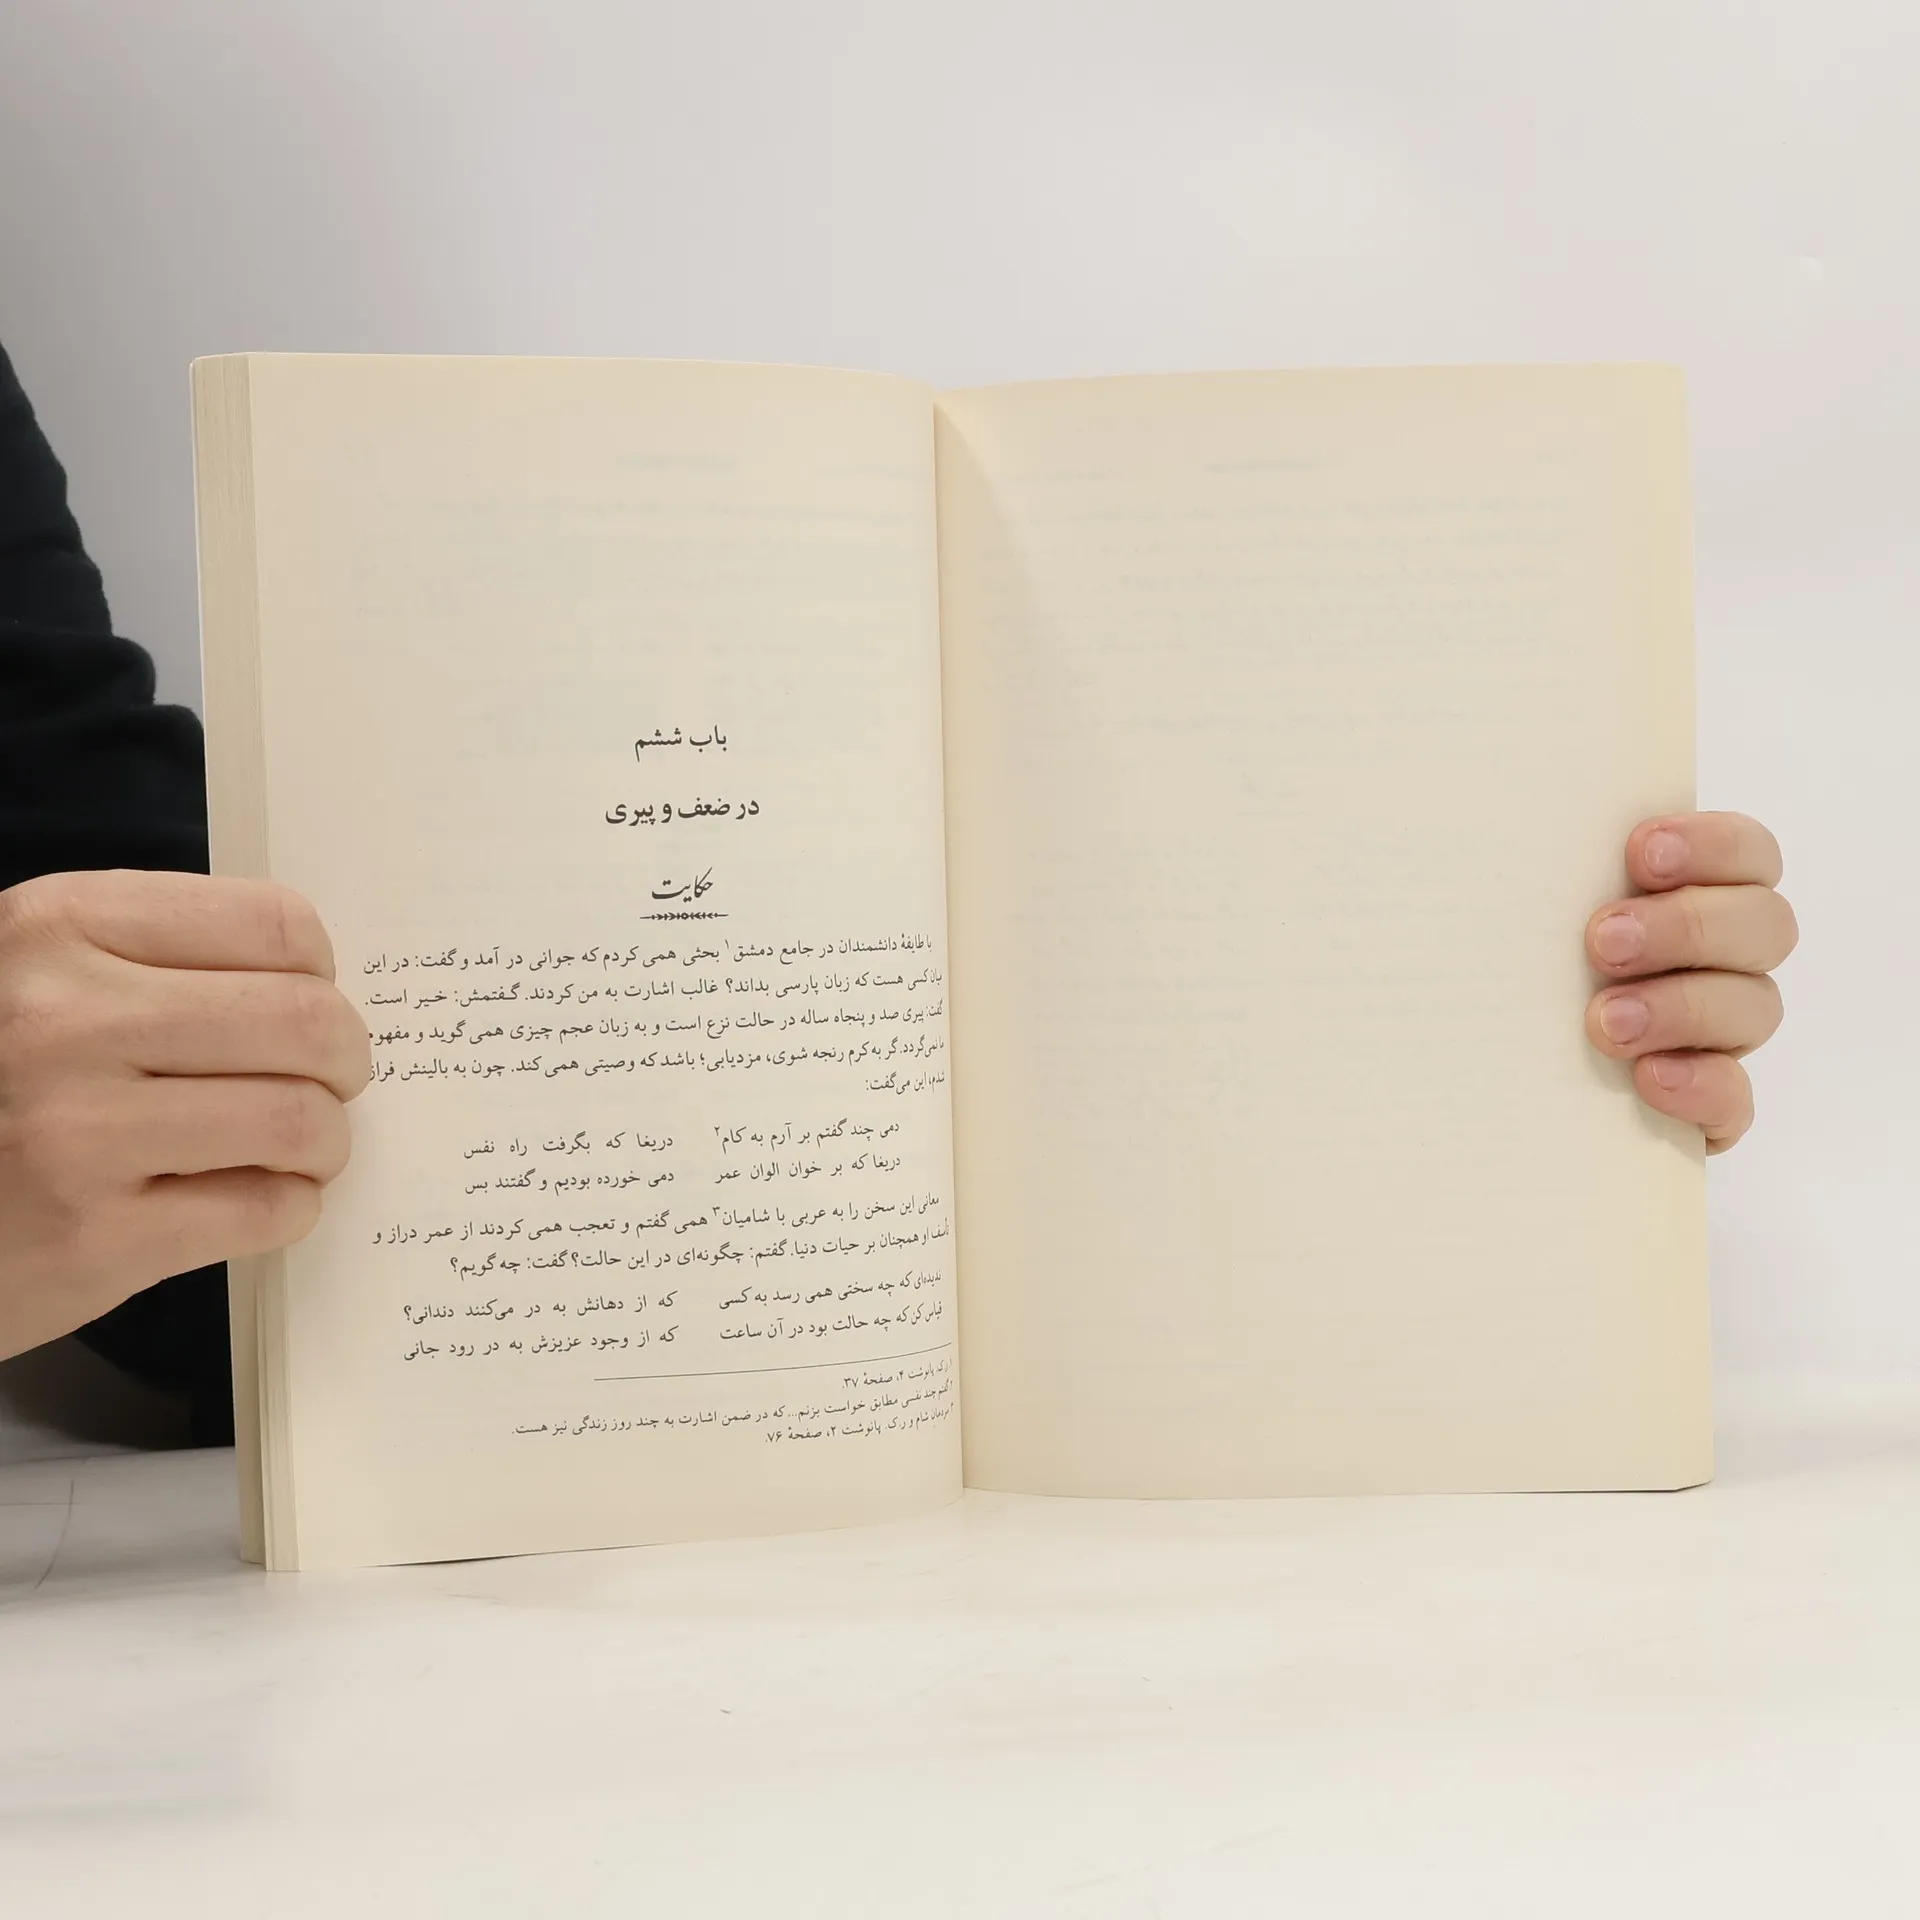 باب ششم
در ضعف و پیری
حکایت
با طایفهٔ دانشمندان در جامع دمشق۱ بحثی همی‌کردم که جوانی در آمد و گفت: در این
میان کسی هست که زبان پارسی بداند؟ غالب اشارت به من کردند. گفتمش: خیر است.
گفت: پیری صد و پنجاه ساله در حالت نزع است و به زبان عجم چیزی همی‌گوید و مفهوم
ما نمی‌گردد. گر به کرم رنجه شوی، مزدیابی؛ باشد که وصیتی همی‌کند. چون به بالینش فراز
شدم، این می‌گفت:
دمی چند گفتم بر آرم به کام۲ دریغا که بگرفت راه نفس
دریغا که بر خوان الوان عمر دمی خورده بودیم و گفتند بس
معانی این سخن را به عربی با شامیان۳ همی گفتم و تعجب همی‌کردند از عمر دراز و
تأسف او همچنان بر حیات دنیا. گفتم: چگونه‌ای در این حالت؟ گفت: چه گویم؟
ندیده‌ای که چه سختی همی رسد به کسی که از دهانش به در می‌کنند دندانی؟
قیاس کن که چه حالت بود در آن ساعت که از وجود عزیزش به در رود جانی
۱. ر.ک. پانوشت ۴، صفحهٔ ۳۷.
۲. گفتم چند نفسی مطابق خواست بزنم... که در ضمن اشارت به چند روز زندگی نیز هست.
۳. مردمان شام و ر.ک. پانوشت ۲، صفحهٔ ۷۶.